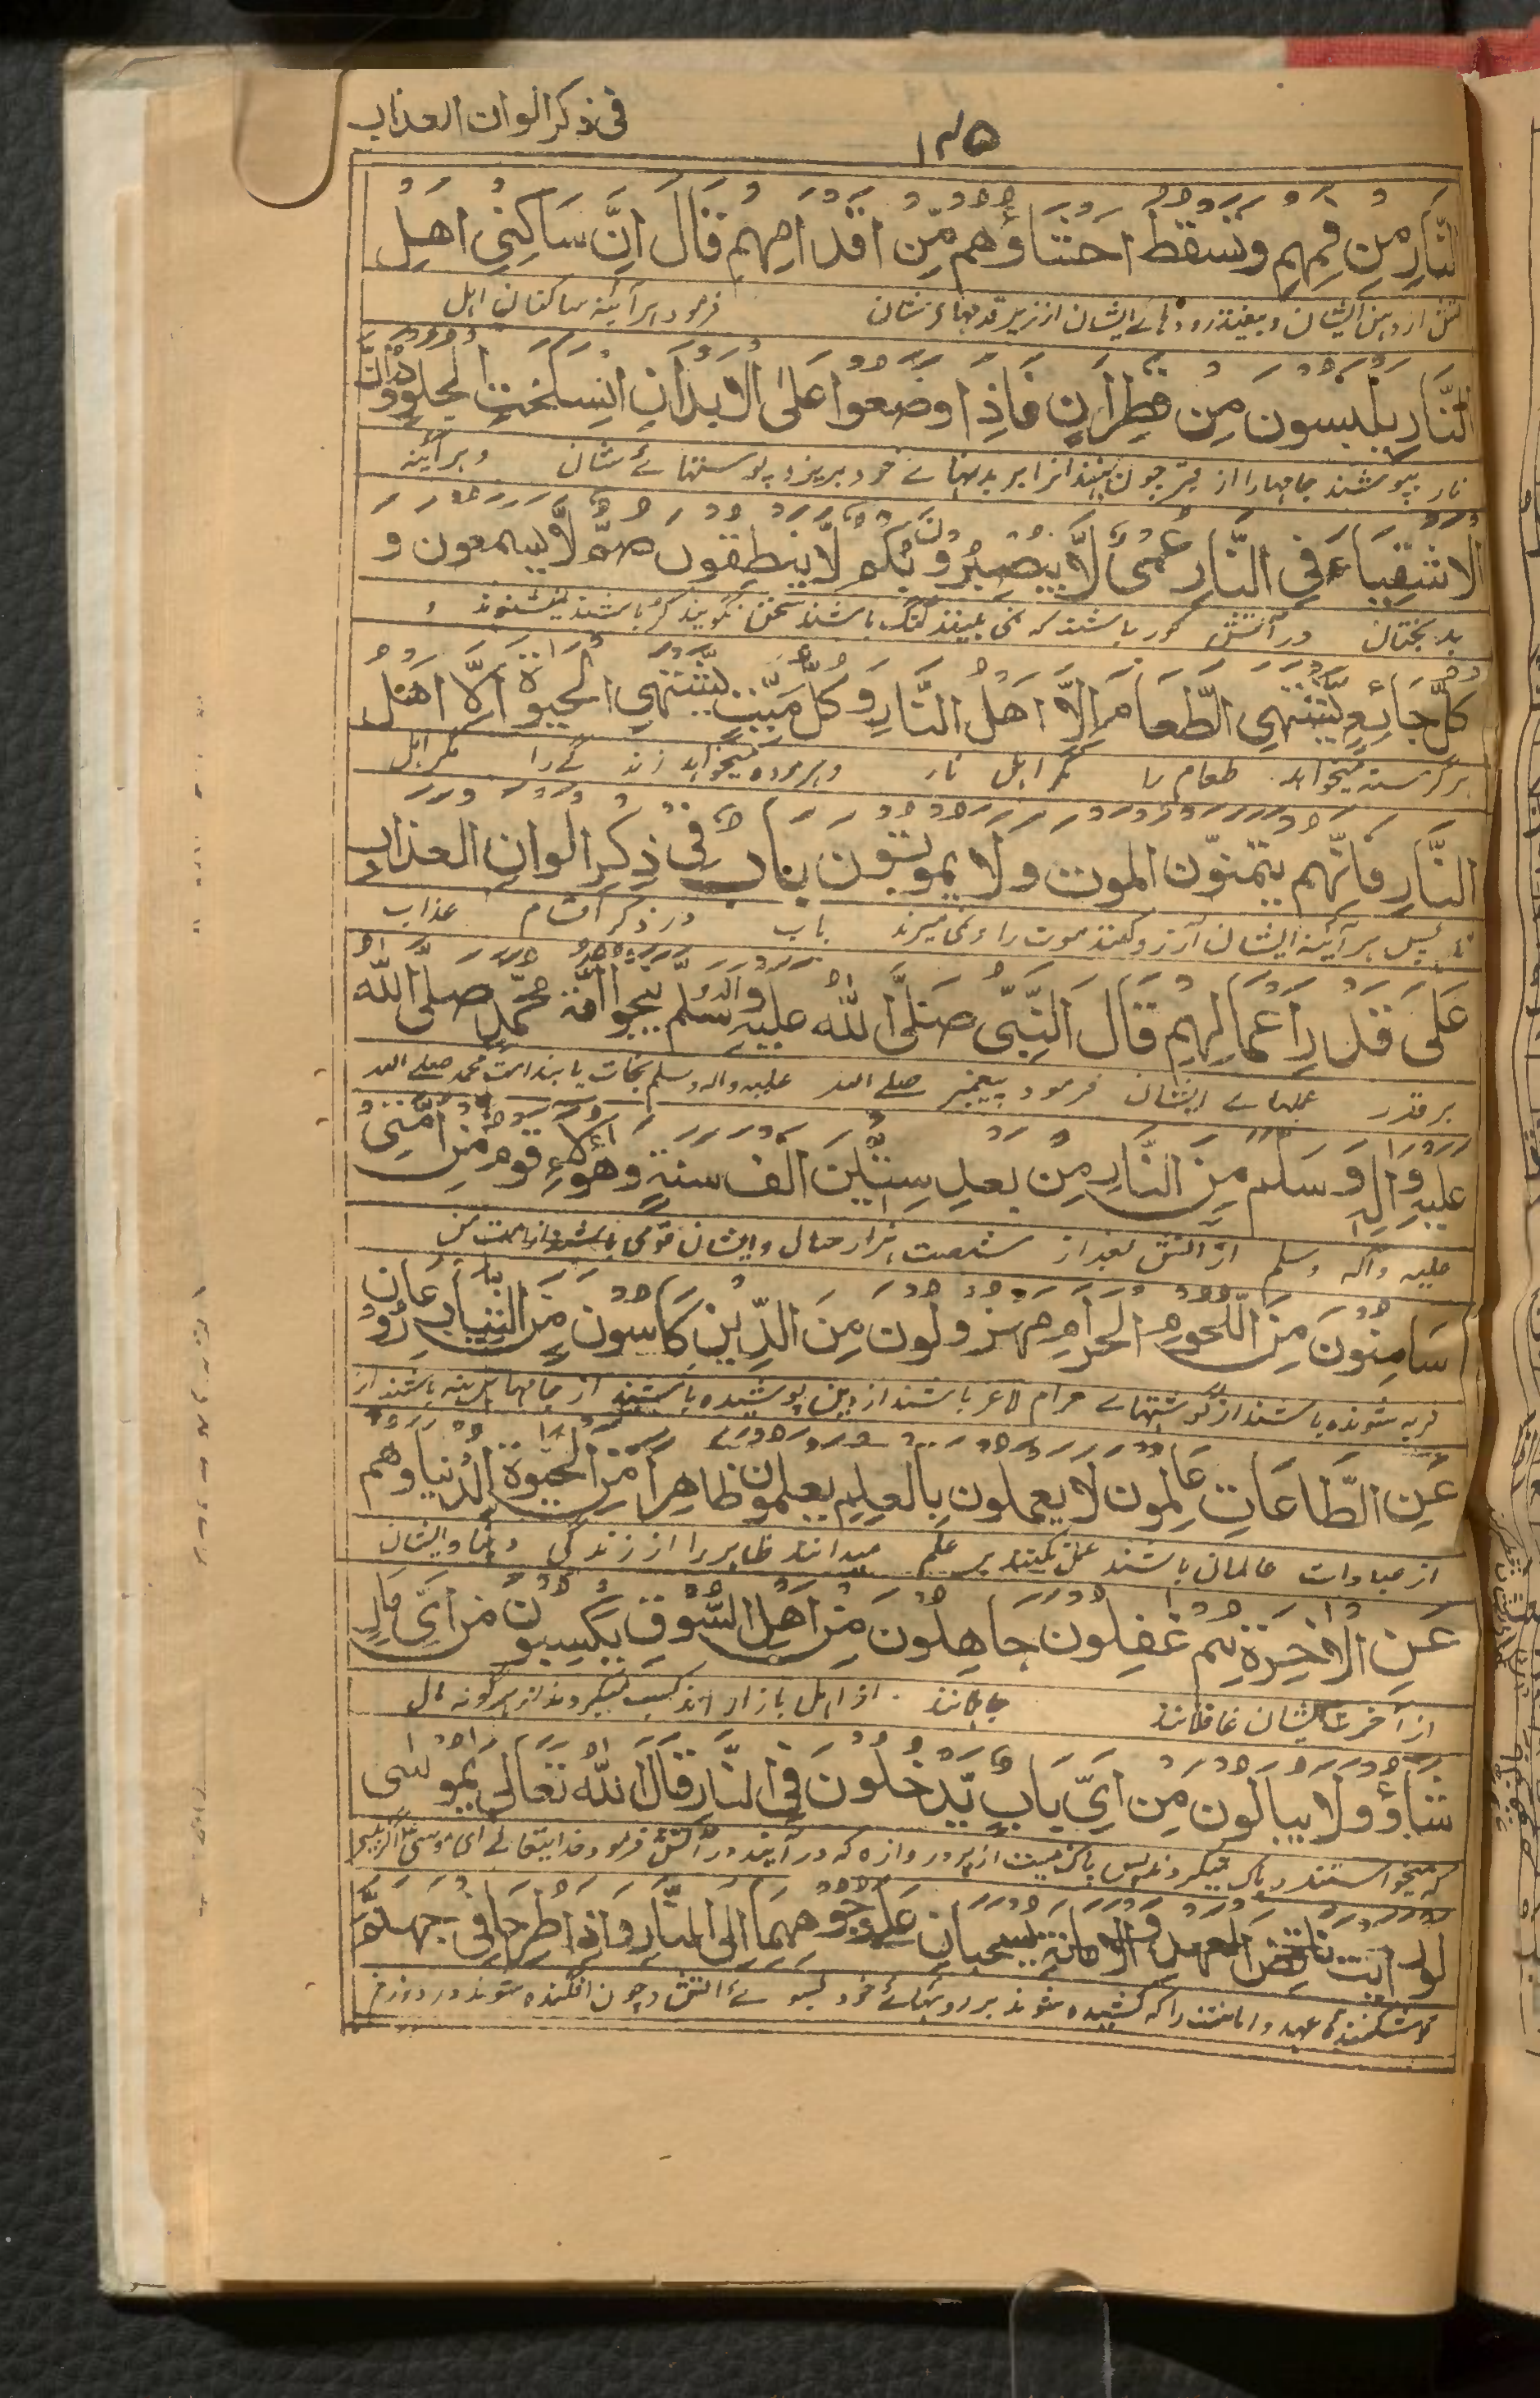 فی ذکر الوان العذاب
۱۳۵
النَّارِ مِن فَمِهِم وتسقط احشاؤُهم مِّن اقدامِهِم قَالَ اِنَّ سَاكِنِي اهلِ
از دہن ایشان و بیفتد رودہائے ایشان از زیر قدمہاے شان فرمود ہر آئنہ ساکنان اہل
النَّارِ يلبسون مِن قِطِرَانٍ فَاِذَا وضعوا عَلى الابدانِ انسلختِ الجلود وانَّ
نار بپوشند جامہا را از قیر چون نہند آنرا بر بدنہائے خود بریزد پوستہائے شان و ہر آئینہ
الاشقِيَاءَ فِي النَّارِ عُمْىٌ لَّا يُبْصِرُونَ وبُكمٌ لَّا ينطِقون صمٌّ لَّا يسمعون و
بدبختان در آتش کور باشند کہ نمی بینند گنگ باشند سخن نگویند کر باشند نمیشنوند و
كلُّ جَائِعٍ يَّشْتَهِي الطَّعَامَ اِلَّا اَهْلُ النَّارِ وَكُلُّ مَيِّتٍ يَّشْتَهِي الحيوةَ اِلَّا اهلُ
ہر گرسنہ میخواہد طعام را مگر اہل نار و ہر مردہ میخواہد زندگے را مگر اہل
النَّارِ فَاِنَّهم يتمنّون الموت ولا يموتون باب فی ذكرِ الوانِ العذابِ
پس ہر آئینہ ایشان آرزو کنند موت را و نمی میرند باب در ذکر اقسام عذاب
عَلَى قَدرِ اَعمَالِهِم قَالَ النَّبِيُّ صَلَّى اللهُ عليهِ والهٖ وسلَّم ينجوا امّة محمّدٍ صلّى اللهُ
بر قدر عملہاے ایشان فرمود پیغمبر صلے اللہ علیہ والہ وسلم نجات یابند امت محمد صلے اللہ
عليهِ والهٖ وسَلم مِنَ النَّارِ مِن بعدِ سِتِّينَ الف سنةٍ وهٰؤلاءِ قوم مِن امّتي
علیہ وآلہ وسلم از آتش بعد از شصت ہزار سال و ایشان قومی باشند از امت من
سَامِنُونَ مِنَ اللُّحومِ الحرامِ مهزولون مِنَ الدِّينِ كَاسونَ مِنَ الثيابِ عَارُون
فربہ شوندہ باشند از گوشتہاے حرام لاغر باشند از دین پوشیدہ باشند از جامہا برہنہ باشند از
عَنِ الطَّاعَاتِ عَالِمون لا يعملون بِالعلمِ يعلمون ظاهِرًا مِنَ الحيوةِ الدُّنيا وهم
از عبادات عالمان باشند عمل نکنند بر علم میدانند ظاہر را از زندگی دنیا و ایشان
عَنِ الاٰخِرَةِ هم غٰفِلون جاهِلُونَ مِن اهلِ السُّوقِ يكسِبون مِن ايِّ مالٍ
از آخرت ایشان غافلانند جاہلانند از اہل بازار اند کسب میکردند از ہر گونہ مال
شَاؤُا ولا يبالون مِن ايِّ بابٍ يَّدْخُلُونَ فِي النَّارِ قال اللهُ تعالى يموسى
کہ میخواستند و باک نمیکردند پس باک نیست از ہر دروازہ کہ در آیند در آتش فرمود خدا یتعالے ای موسی اگر ببینی
لو رايت ناقض العهدِ والامانةِ يسحبان على وجوههما الى النَّارِ واذا طرحا في جهنّم
شکنندہ عہد و امانت را کہ کشیدہ شوند بر رویہائے خود بسوئے آتش و چون افگندہ شوند در دوزخ